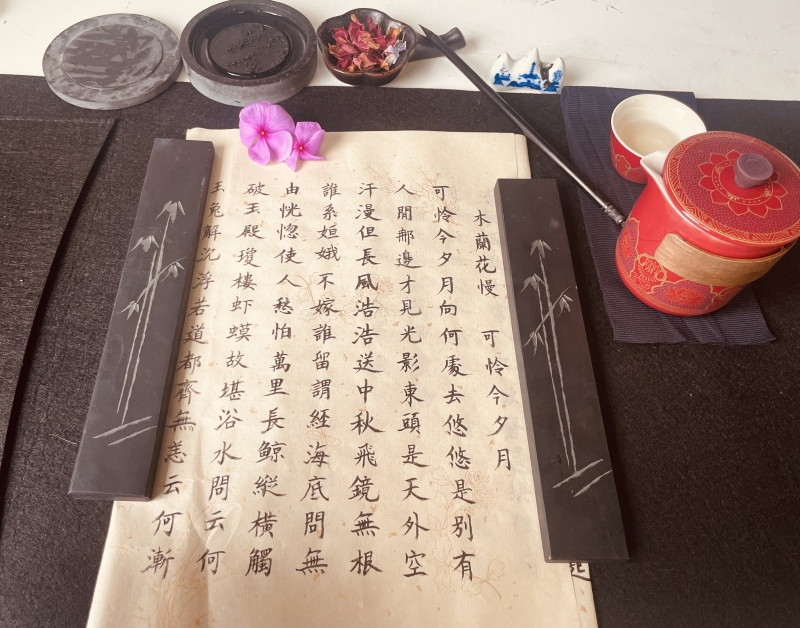 木蘭花慢 可怜今夕月
可怜今夕月向何處去悠悠是别有
人間那邊才見光影東頭是天外空
汗漫但長風浩浩送中秋飛鏡無根
誰系姮娥不嫁誰留謂經海底問無
由恍惚使人愁怕萬里長鲸縱橫觸
破玉殿瓊樓虾蟆故堪浴水問云何
玉兔解沉浮若道都齊無恙云何漸